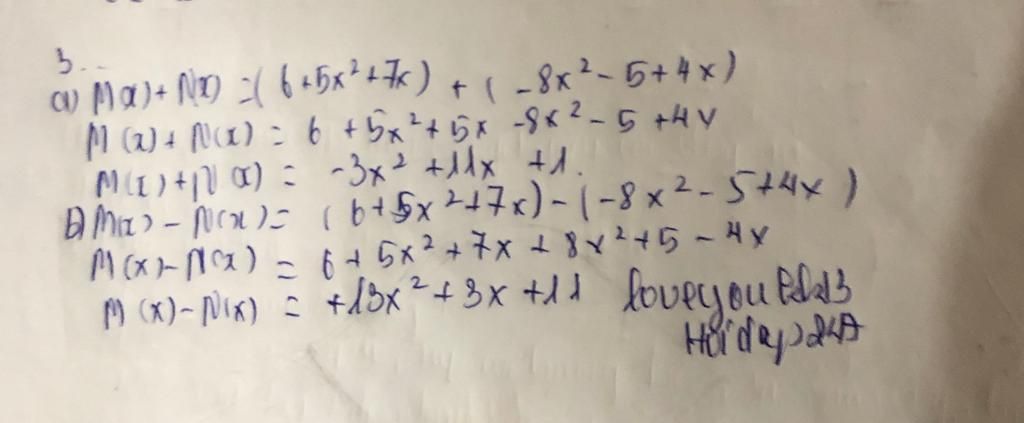 3.
a) M(x) + N(x) = ( 6 + 5x² + 7x ) + ( - 8x² - 5 + 4x )
M(x) + N(x) = 6 + 5x² + 5x - 8x² - 5 + 4x
M(x) + N(x) = -3x² + 11x + 1.
b) M(x) - N(x) = ( 6 + 5x² + 7x ) - ( - 8x² - 5 + 4x )
M(x) - N(x) = 6 + 5x² + 7x + 8x² + 5 - 4x
M(x) - N(x) = + 13x² + 3x + 11 loveyou
Hoidap247